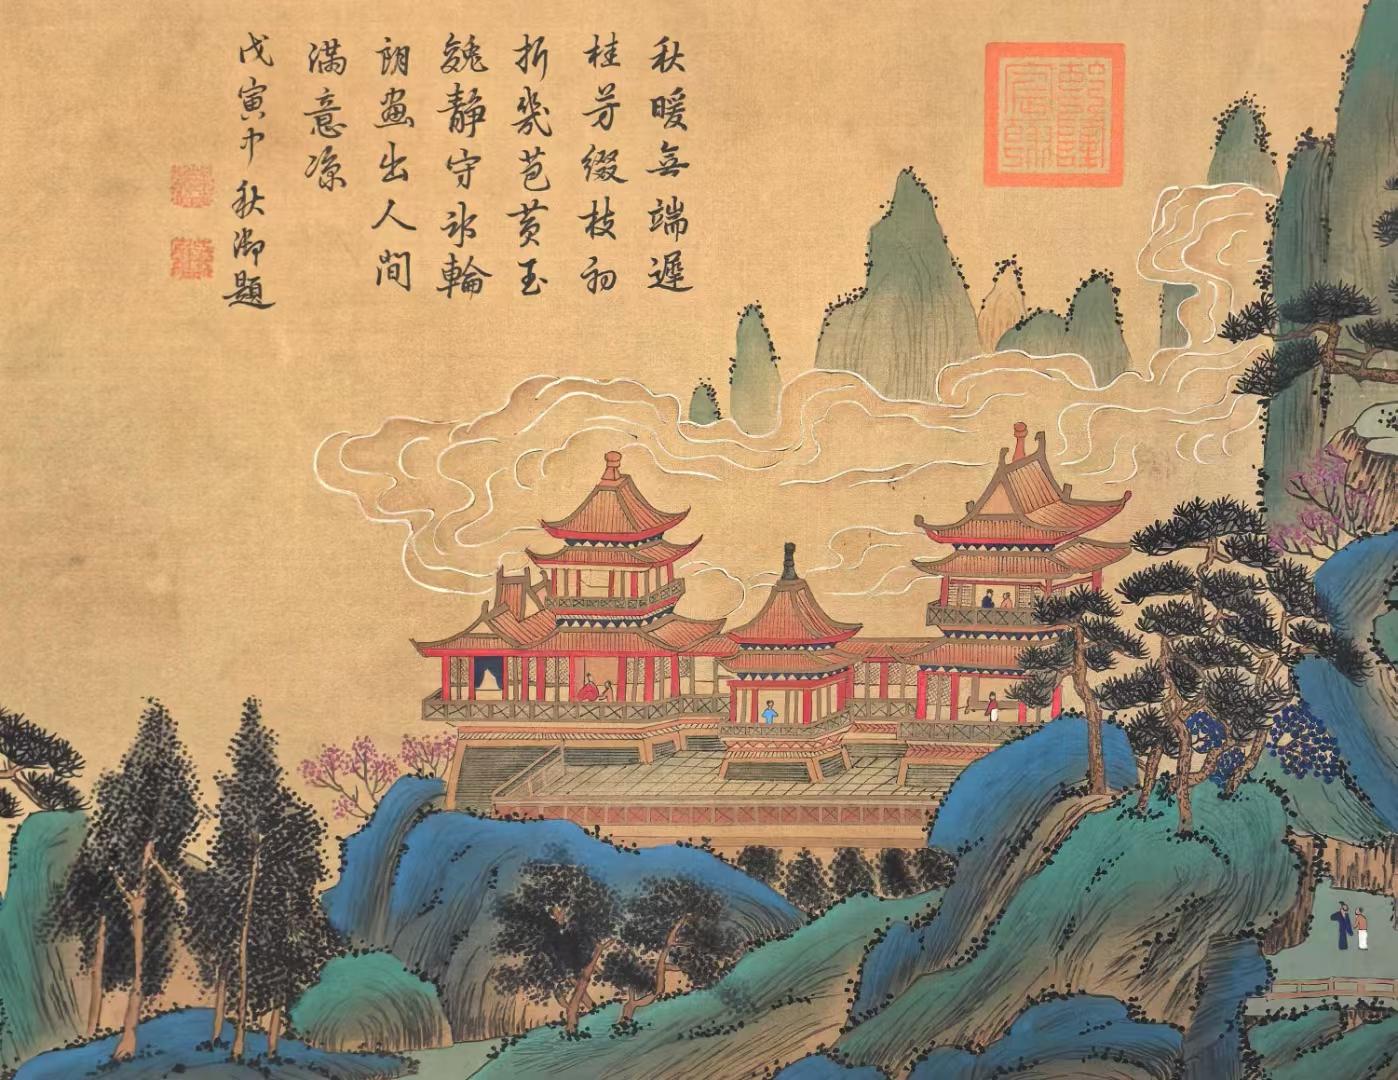 秋暖無端遲
桂芳綴枝初
折幾苞黃玉
靜守冰輪
朗畫出人間
滿意涼
戊寅中秋御題
乾隆宸翰